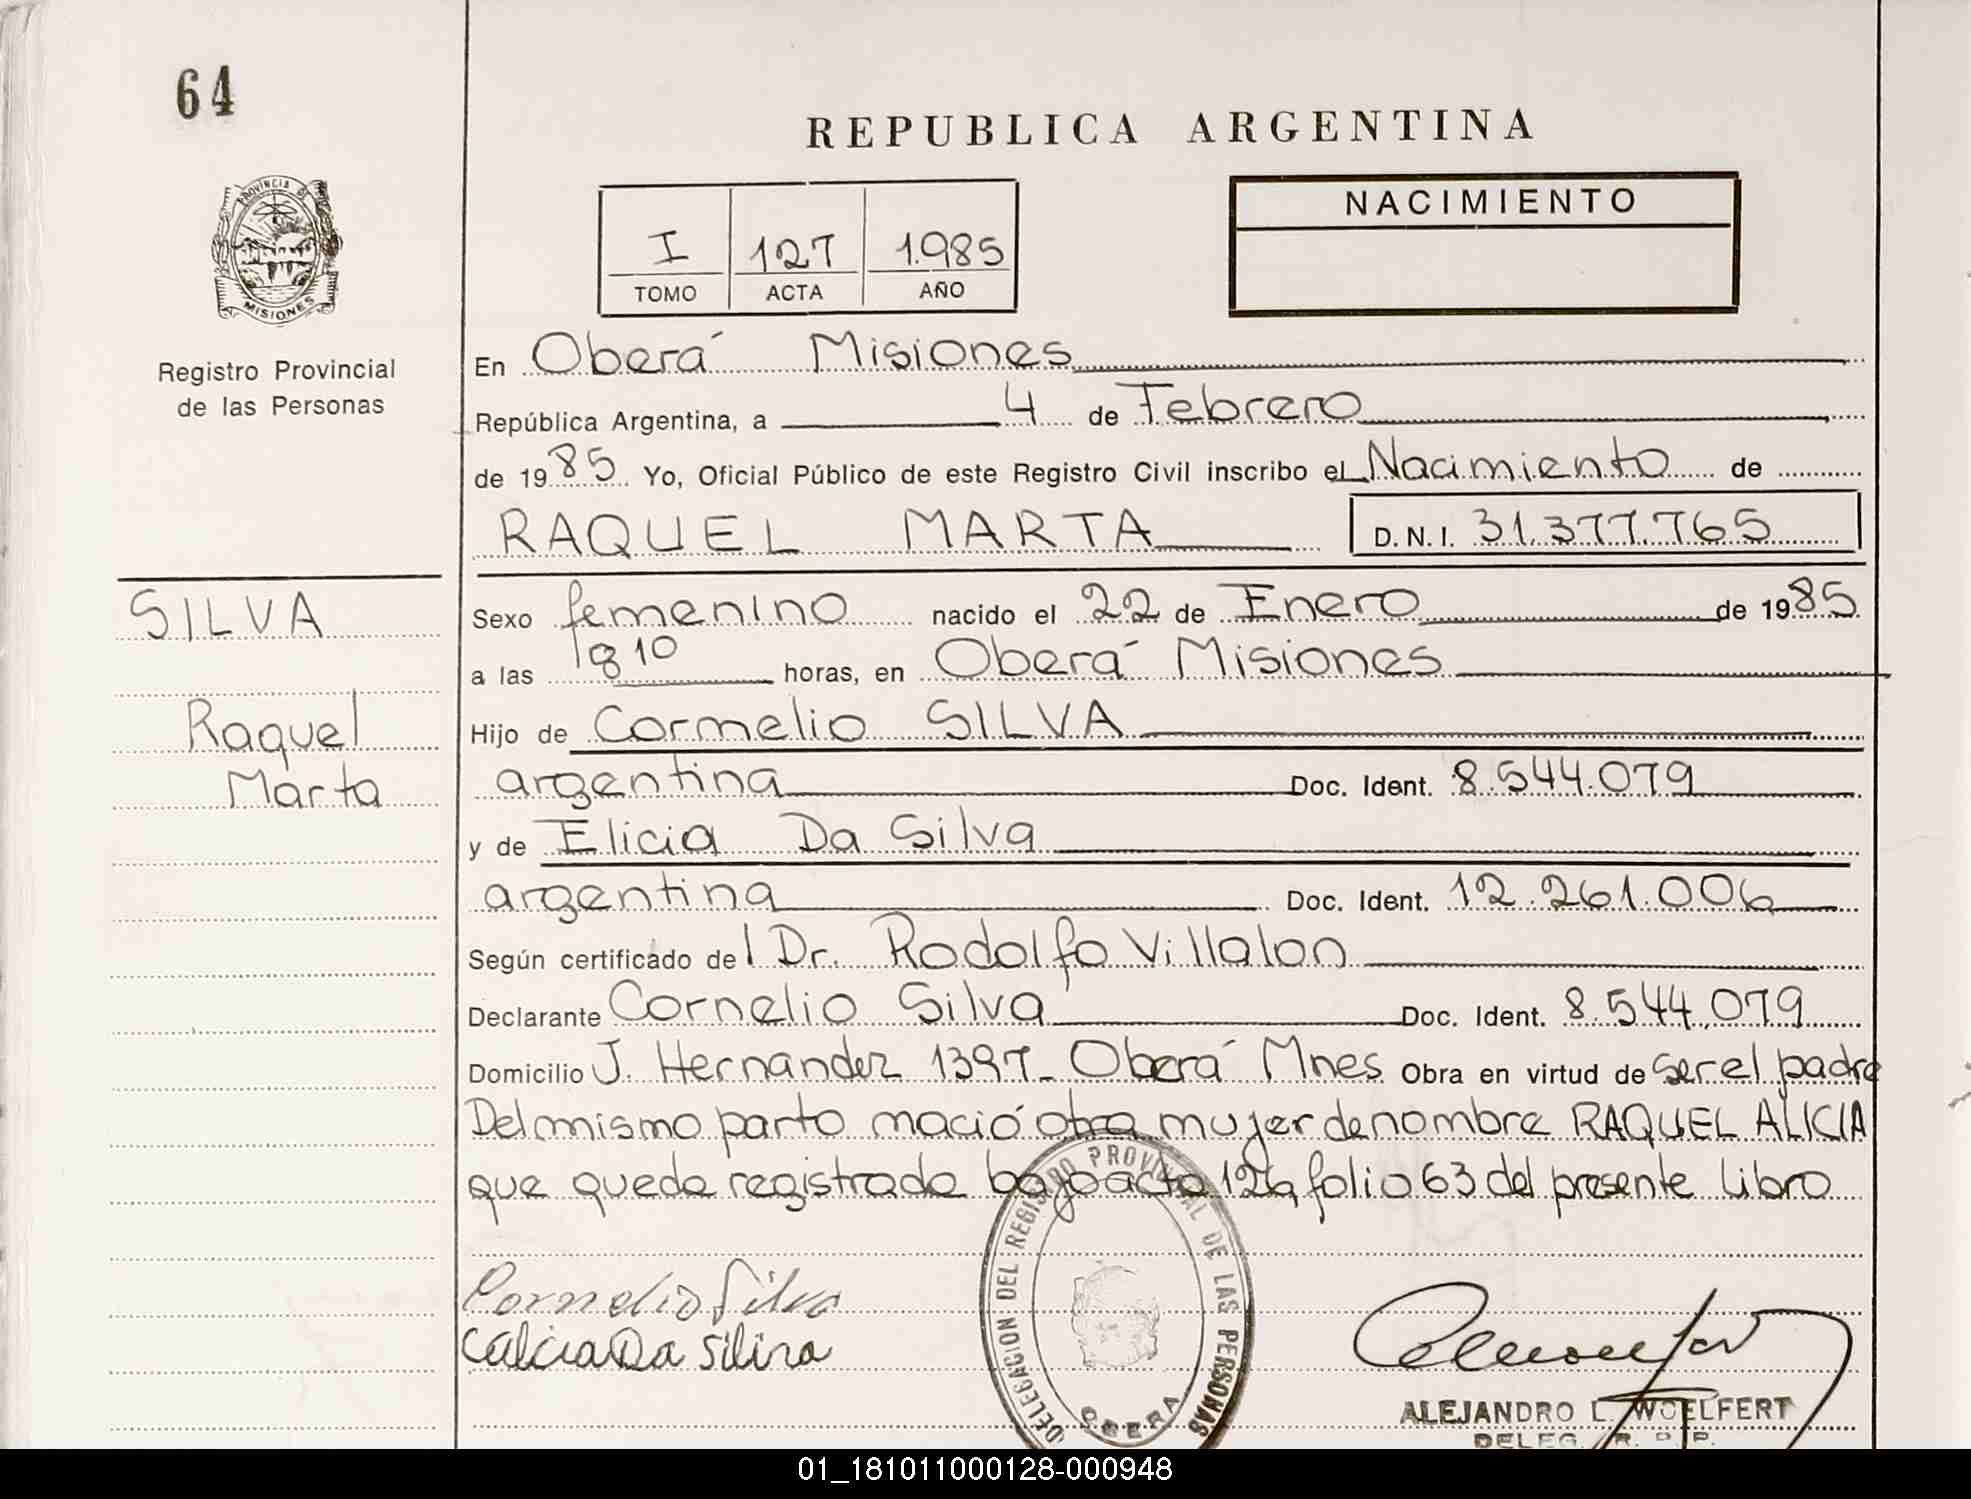 64
REPUBLICA ARGENTINA
PROVINCIA DE
MISIONES
Registro Provincial
de las Personas
I 127 1.985
TOMO ACTA AÑO
NACIMIENTO
En Oberá Misiones
República Argentina, a 4 de Febrero
de 1985 Yo, Oficial Público de este Registro Civil inscribo el Nacimiento de
RAQUEL MARTA D.N.I. 31.377.765
SILVA
Raquel
Marta
Sexo femenino nacido el 22 de Enero de 1985
a las 810 horas, en Oberá Misiones
Hijo de Cornelio SILVA
argentina Doc. Ident. 8.544.079
y de Elicia Da Silva
argentina Doc. Ident. 12.261.006
Según certificado del Dr. Rodolfo Villalon
Declarante Cornelio Silva Doc. Ident. 8.544.079
Domicilio J. Hernandez 1397- Oberá Mnes Obra en virtud de ser el padre
Del mismo parto nació otra mujer de nombre RAQUEL ALICIA
que queda registrada bajo acta 126, folio 63 del presente Libro
Cornelio Silva
Da
DELEGACION DEL REGISTRO PROVINCIAL DE LAS PERSONAS
OBERA
ALEJANDRO L. WOELFERT
DELEG. R. P. P.
01_181011000128-000948